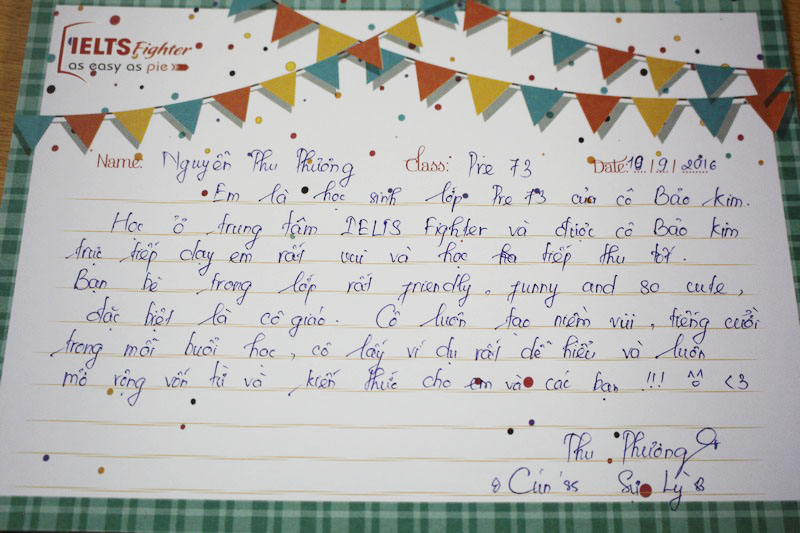 IELTS Fighter
as easy as pie
Name: Nguyễn Thu Phương Class: Pre 73 Date: 10/9/2016
Em là học sinh lớp Pre 73 của cô Bảo Kim.
Học ở trung tâm IELTS Fighter và được cô Bảo Kim
trực tiếp dạy em rất vui và học tiếp thu tốt.
Bạn bè trong lớp rất friendly, funny and so cute,
đặc biệt là cô giáo. Cô luôn tạo niềm vui, tiếng cười
trong mỗi buổi học, cô lấy ví dụ rất dễ hiểu và luôn
mở rộng vốn từ và kiến thức cho em và các bạn !!! ^^ <3
Thu Phương
Cún's Lý